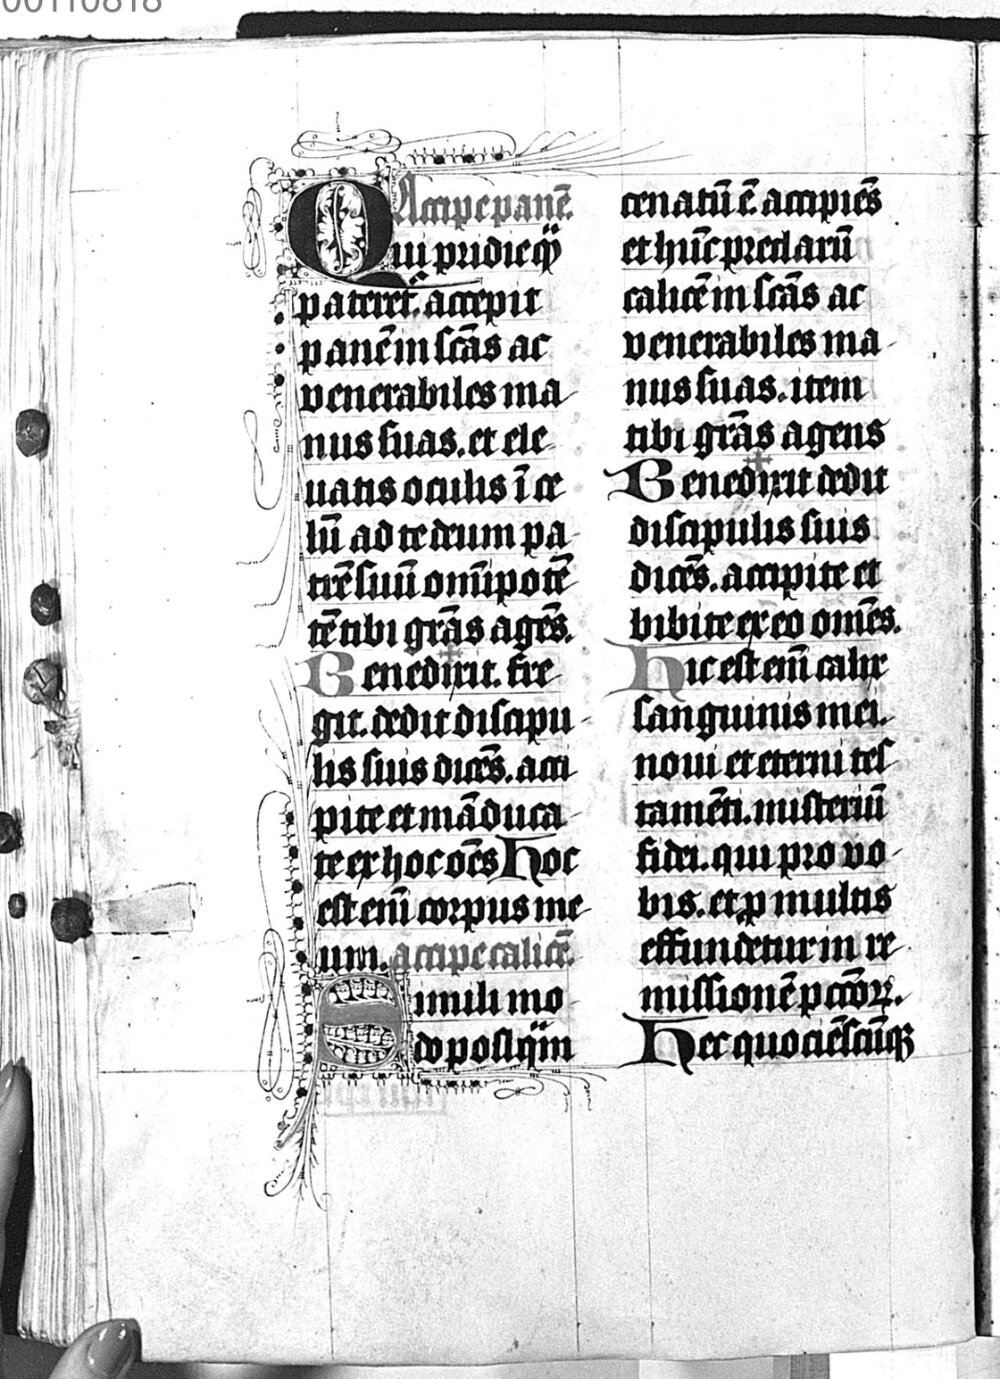 00110818
Accipe panē.
Qui pridie qͣ
pateret᷑. accepit
panē in sc̄as ac
venerabiles ma
nus suas. et ele
uatis oculis ī ce
lū ad te deum pa
trē suū om̄ipotē
tē tibi gr̄as agēs.
Bened✝ixit. fre
git. dedit discipu
lis suis dicēs. acci
pite et māduca
te ex hoc oēs Hoc
est eni̅ corpus me
um. accipe calicē
Simili mo
do postqͣm
cenatū ē. accipiēs
et hūc preclarū
calicē in sc̄as ac
venerabiles ma
nus suas. item
tibi gr̄as agens
Bened✝ixit dedit
discipulis suis
dicēs. accipite et
bibite ex eo om̄es.
Hic est eni̅ calix
sanguinis mei.
noui et eterni tes
tamēti. misteriū
fidei. qui pro vo
bis. et ꝓ multis
effundetur in re
missionē pcc̄oꝝ.
Hec quociēscūqꝫ